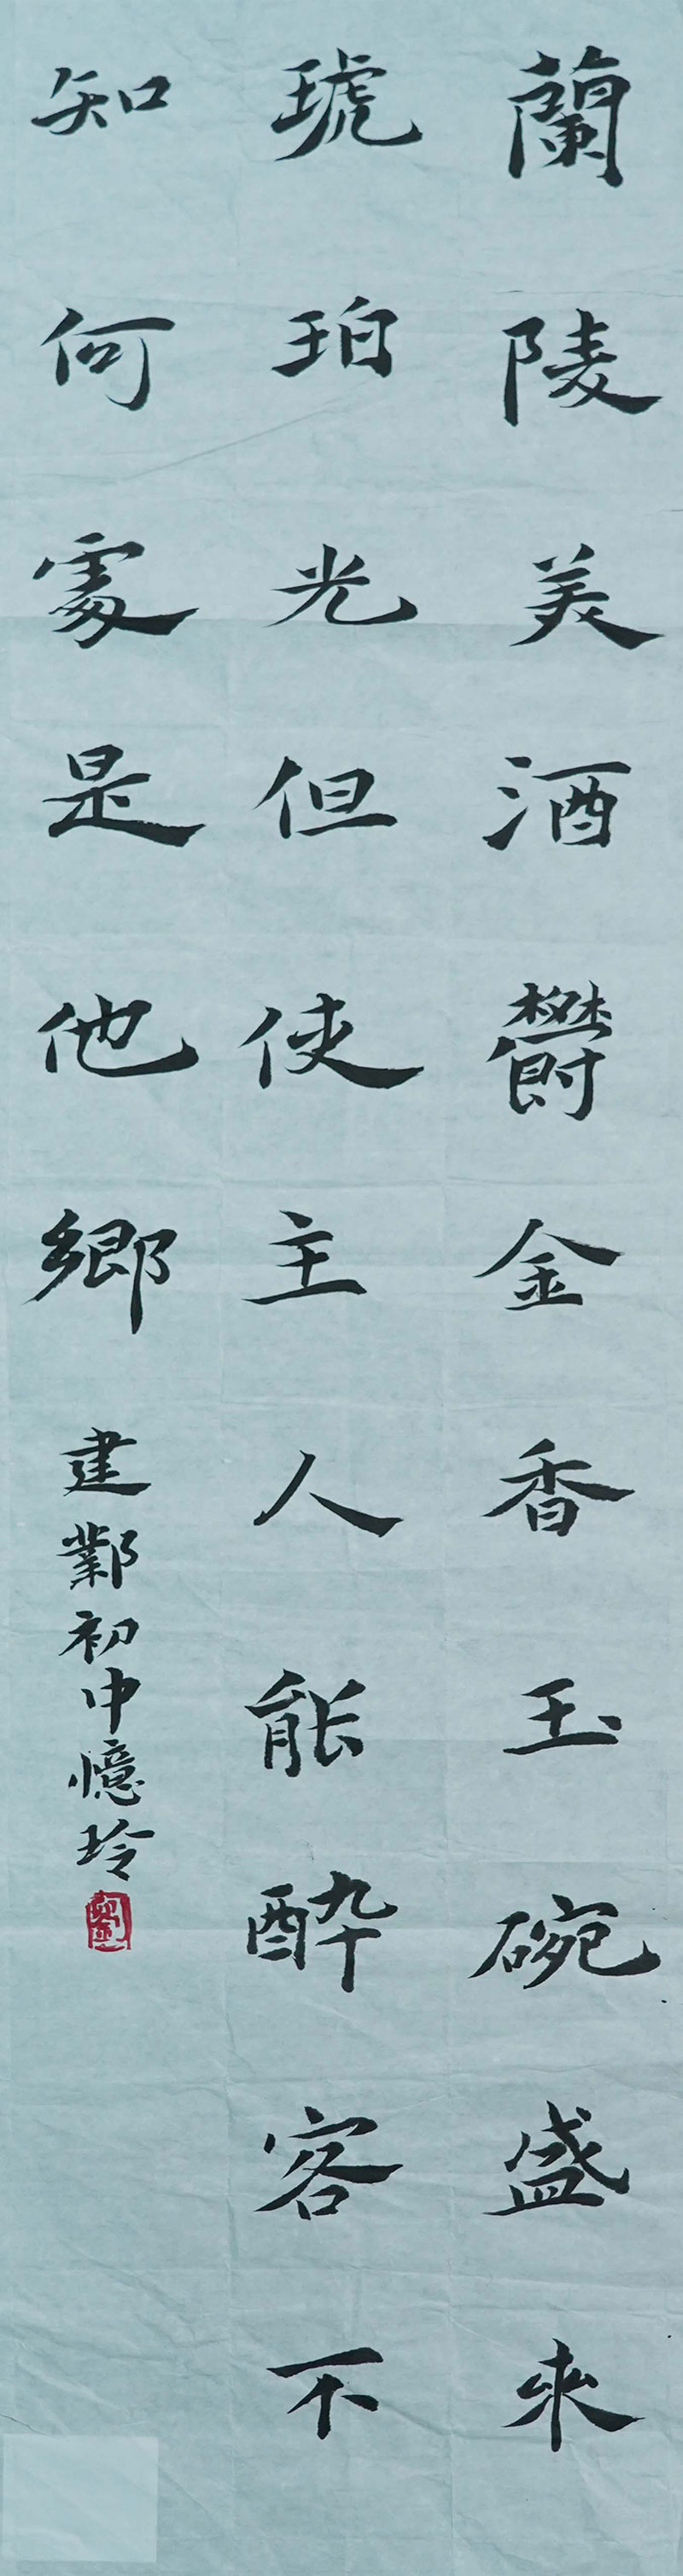 蘭陵美酒鬱金香玉碗盛來
琥珀光但使主人能醉客不
知何處是他鄉
建鄴初中憶玲